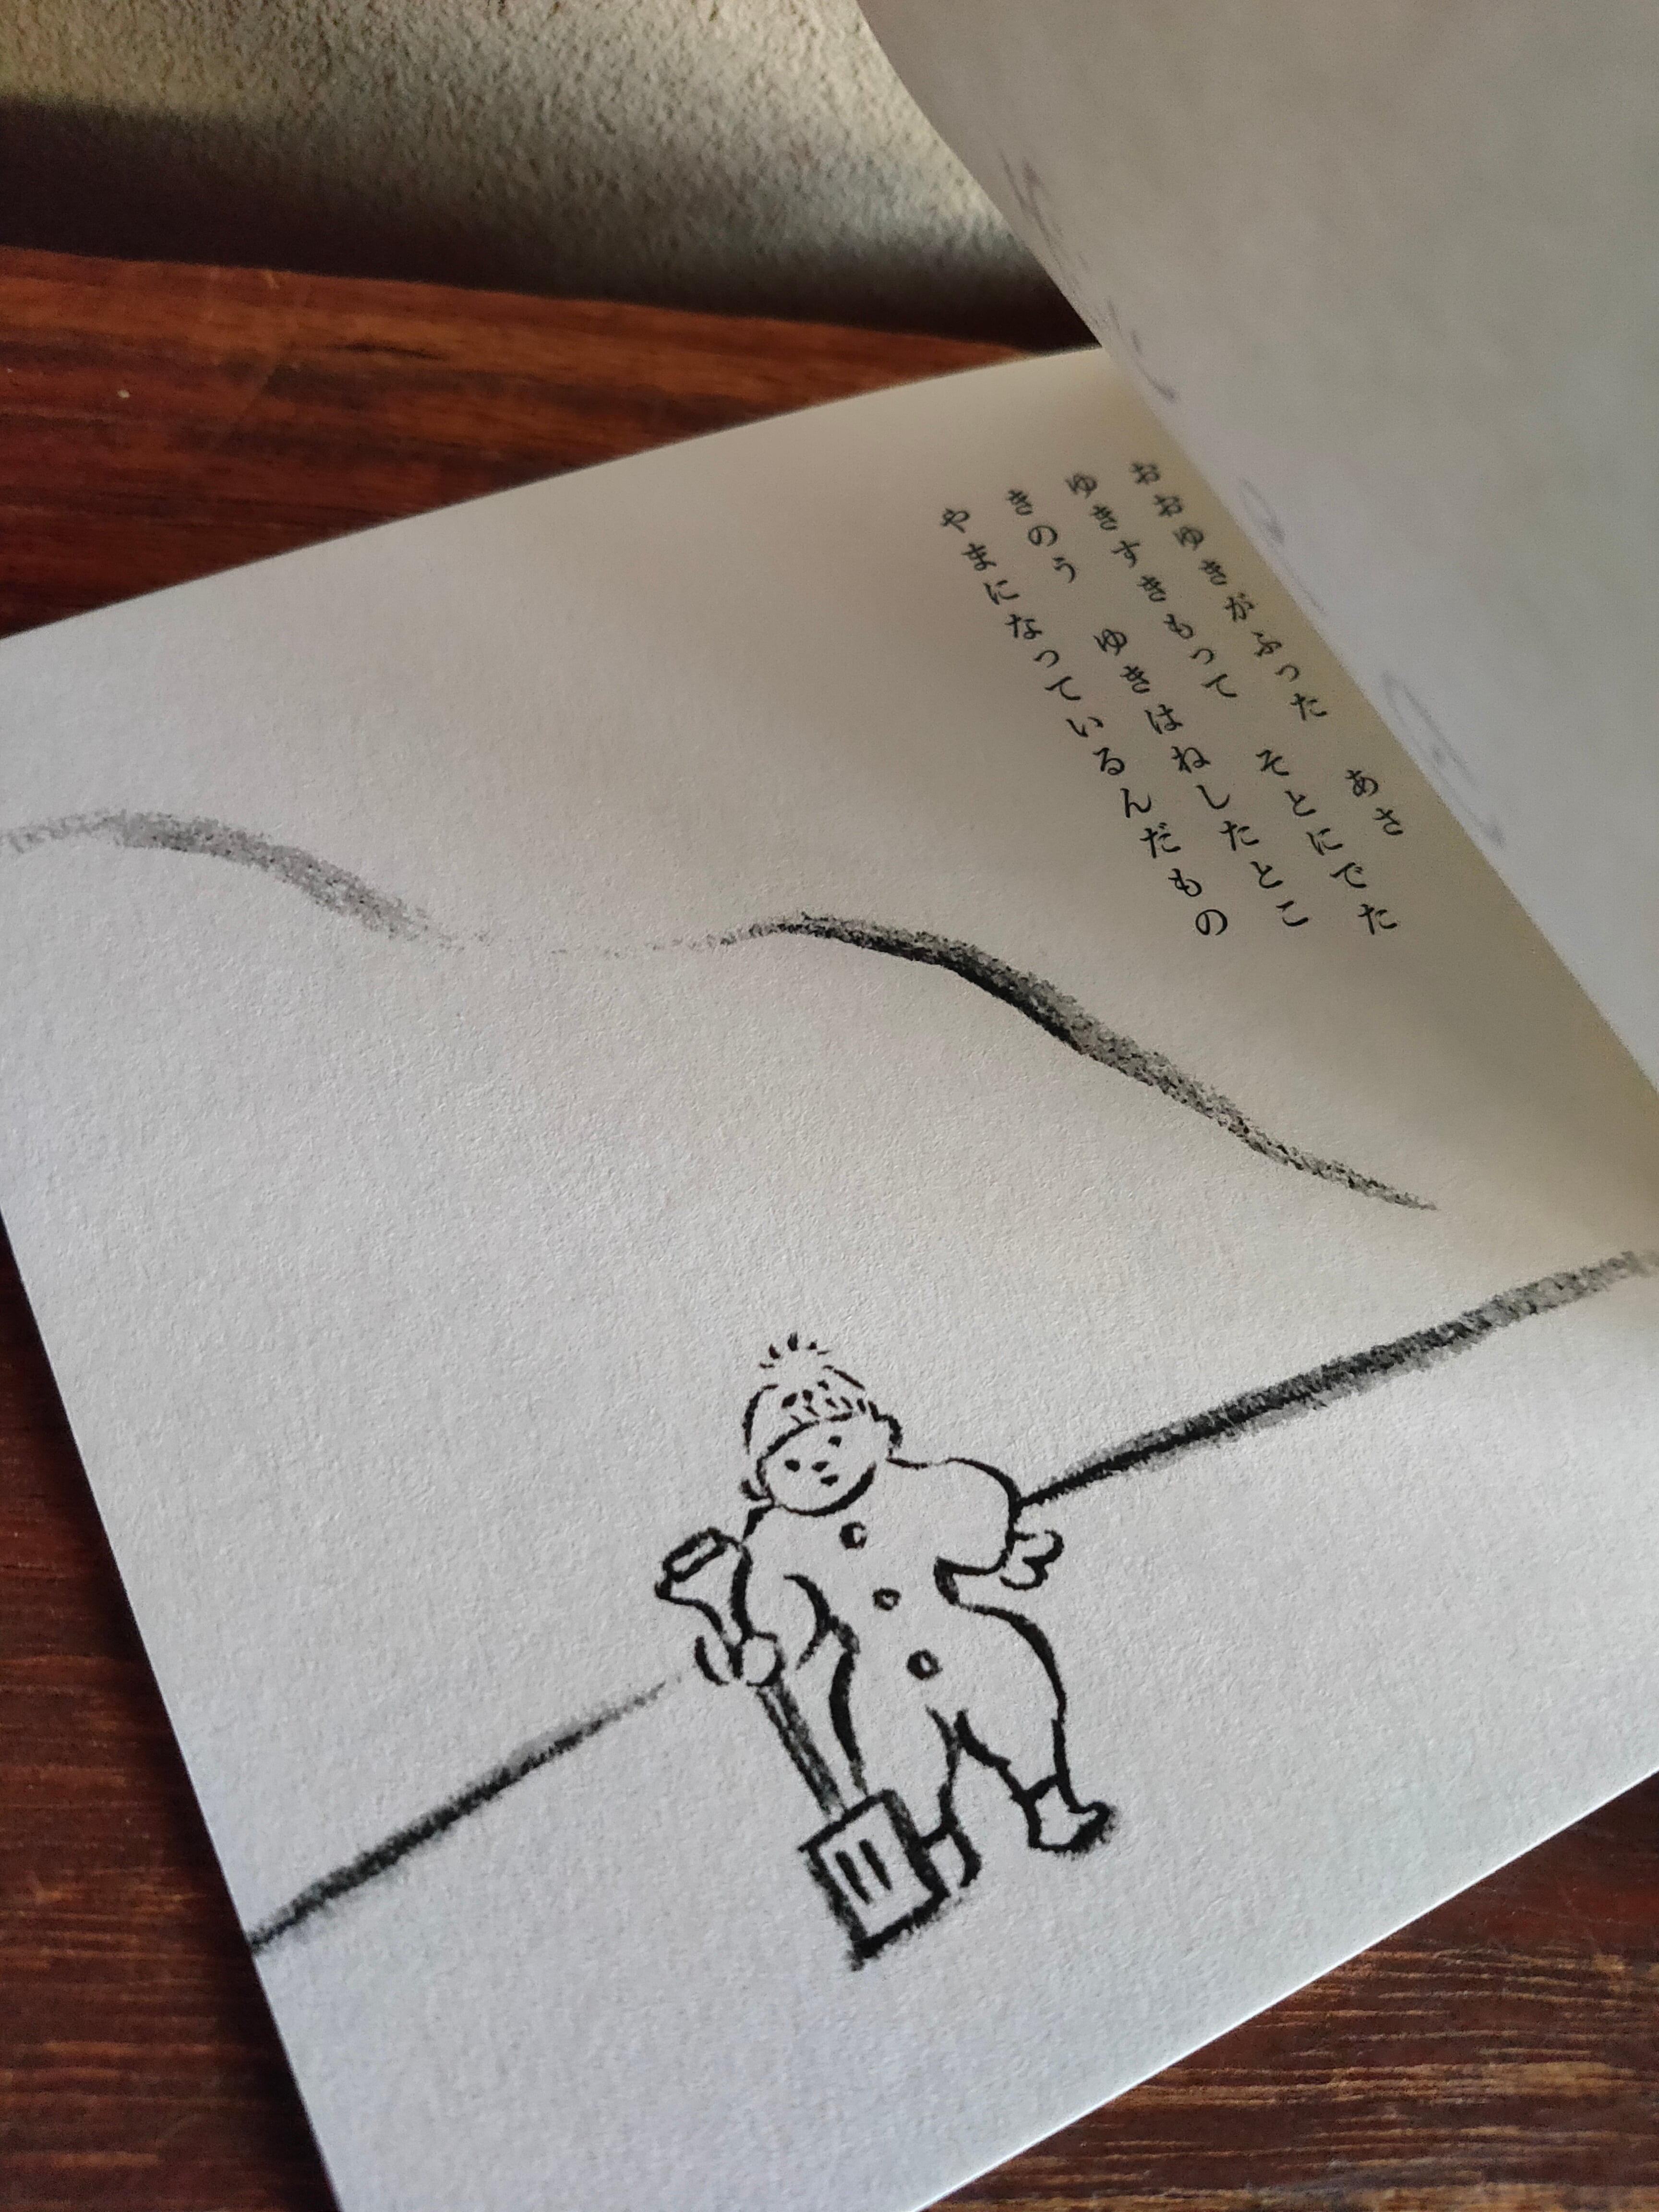 おおゆきがふった　あさ
ゆきすきもって　そとにでた
きのう　ゆきはねしたとこ
やまになっているんだもの